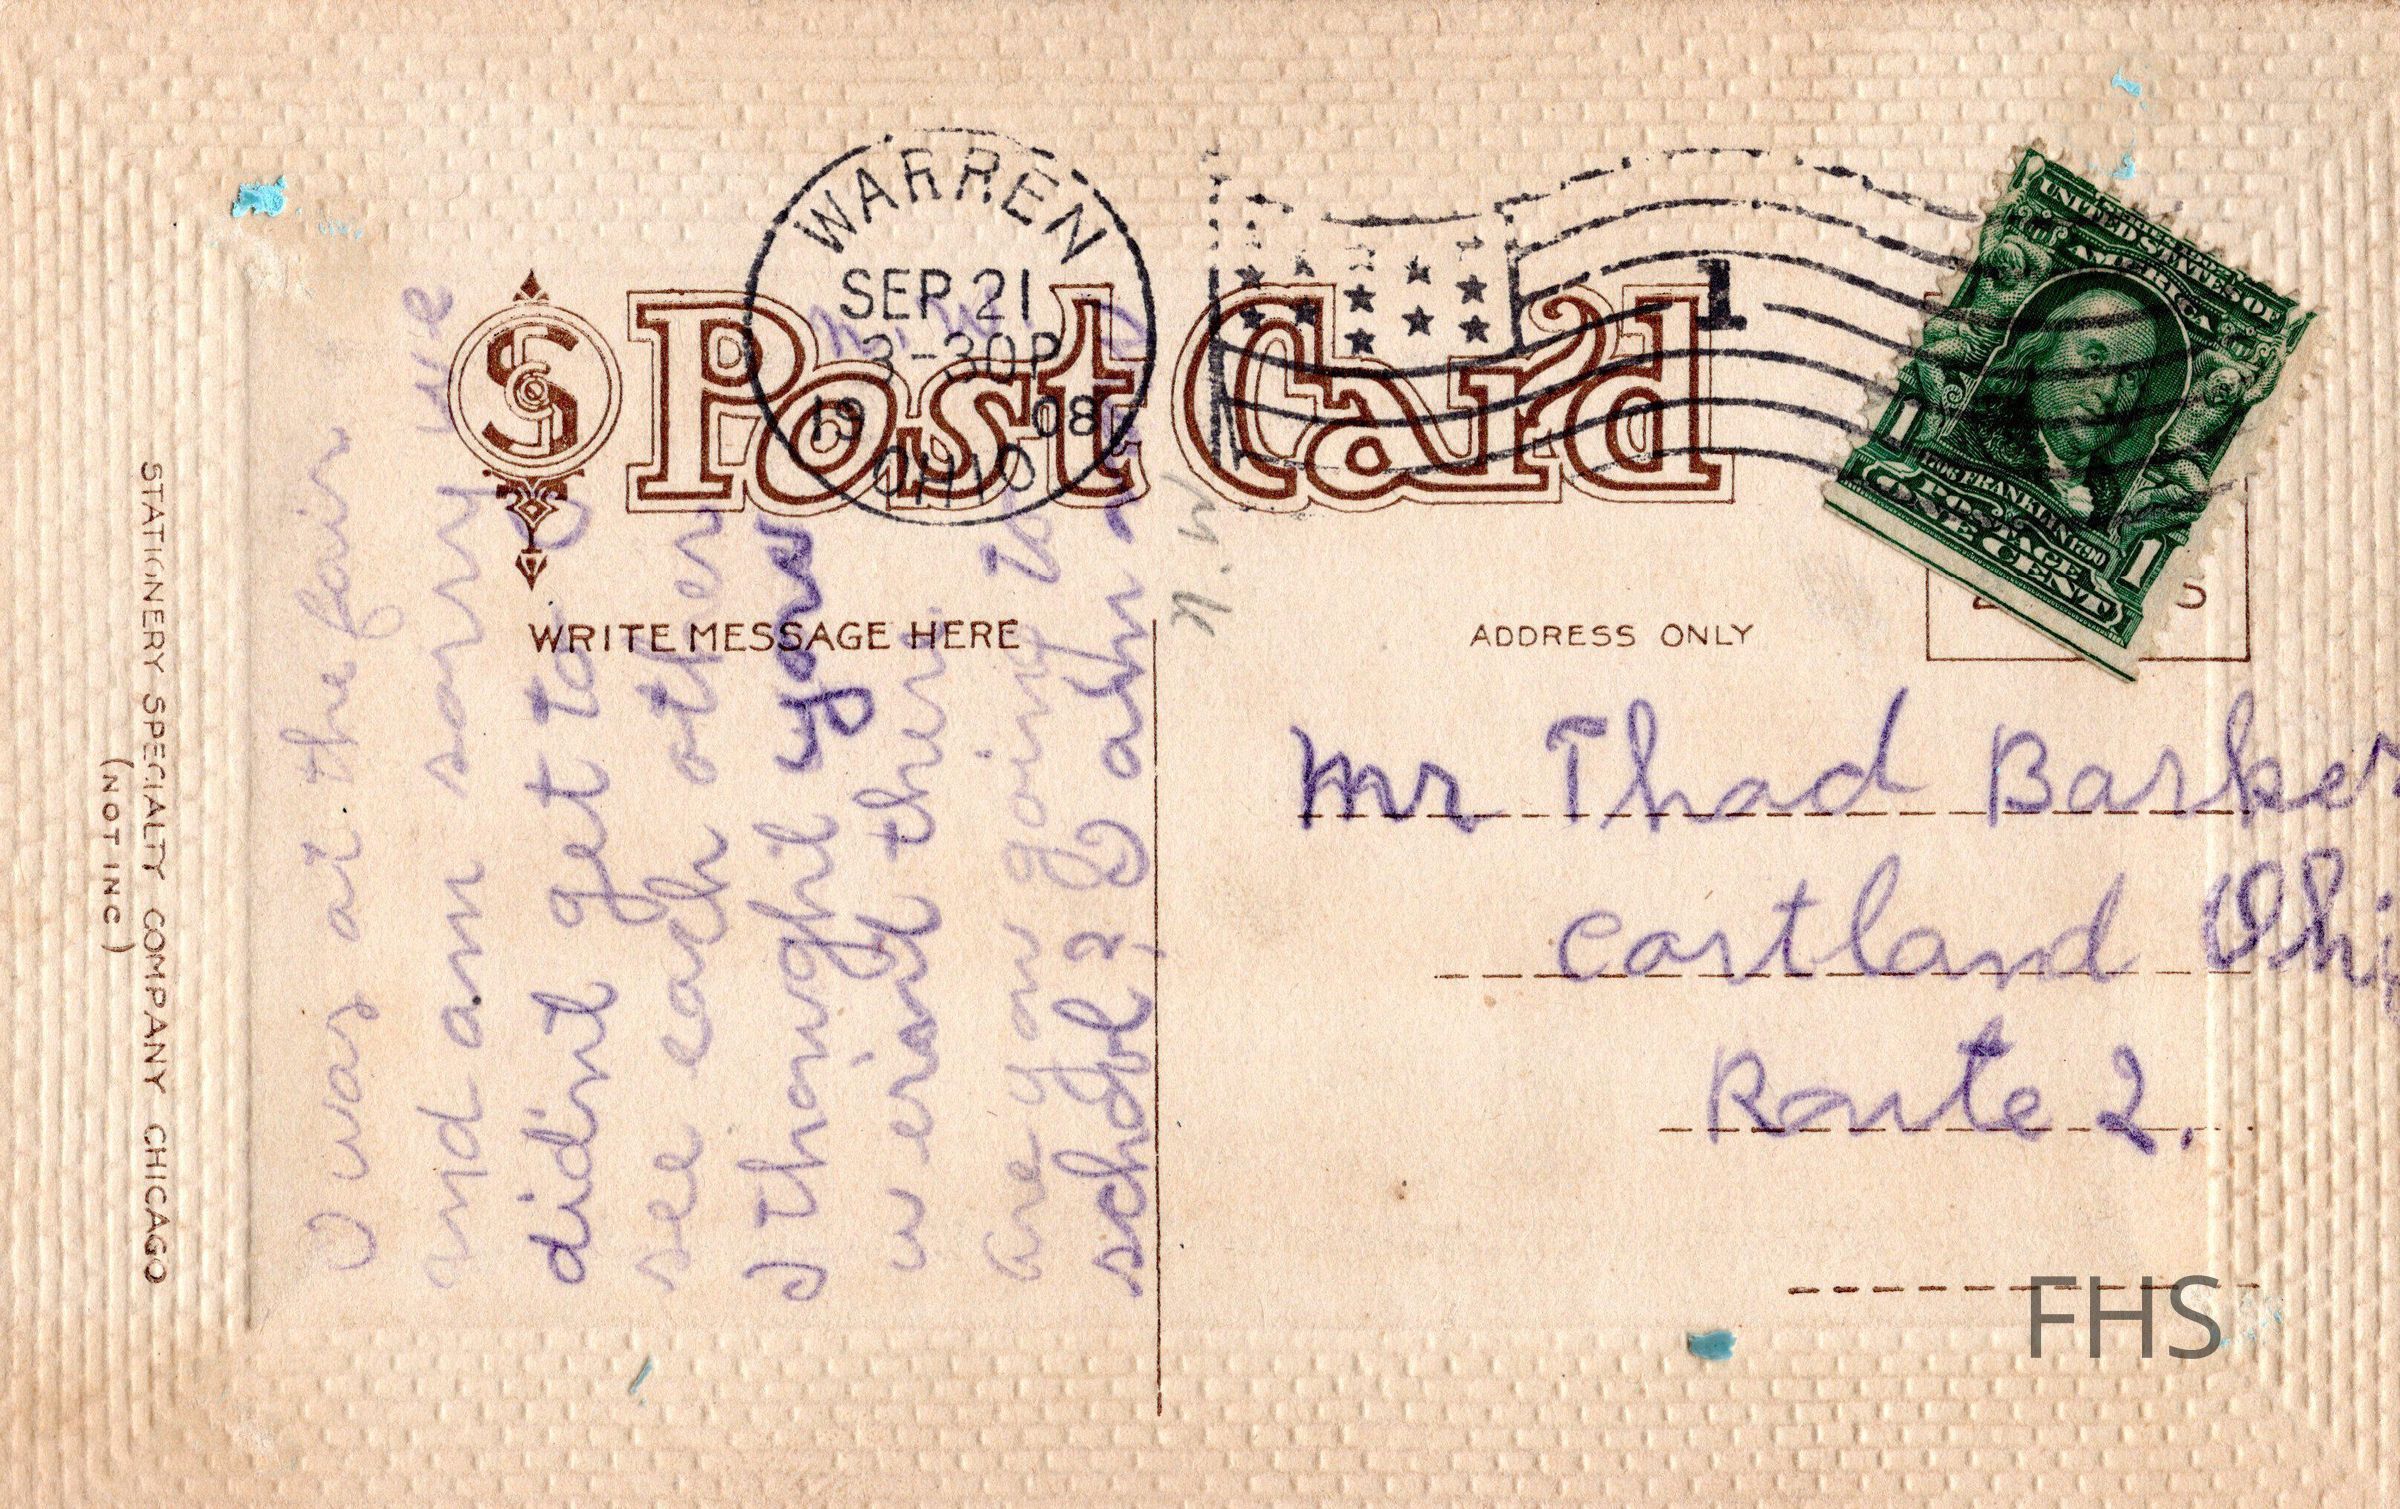 WARREN
SEP 21
3-30P
19 08
OHIO
1
Post Card
UNITED STATES OF
AMERICA
1706 FRANKLIN 1790
POSTAGE
1 ONE CENT 1
WRITE MESSAGE HERE
ADDRESS ONLY
I was at the fair
and am sorry we
didint get to
see each other
I thought you
werant there.
are you going to
school? I ahn
Mr Thad Barker
Cortland Ohio
Route 2.
STATIONERY SPECIALTY COMPANY CHICAGO
(NOT INC)
FHS